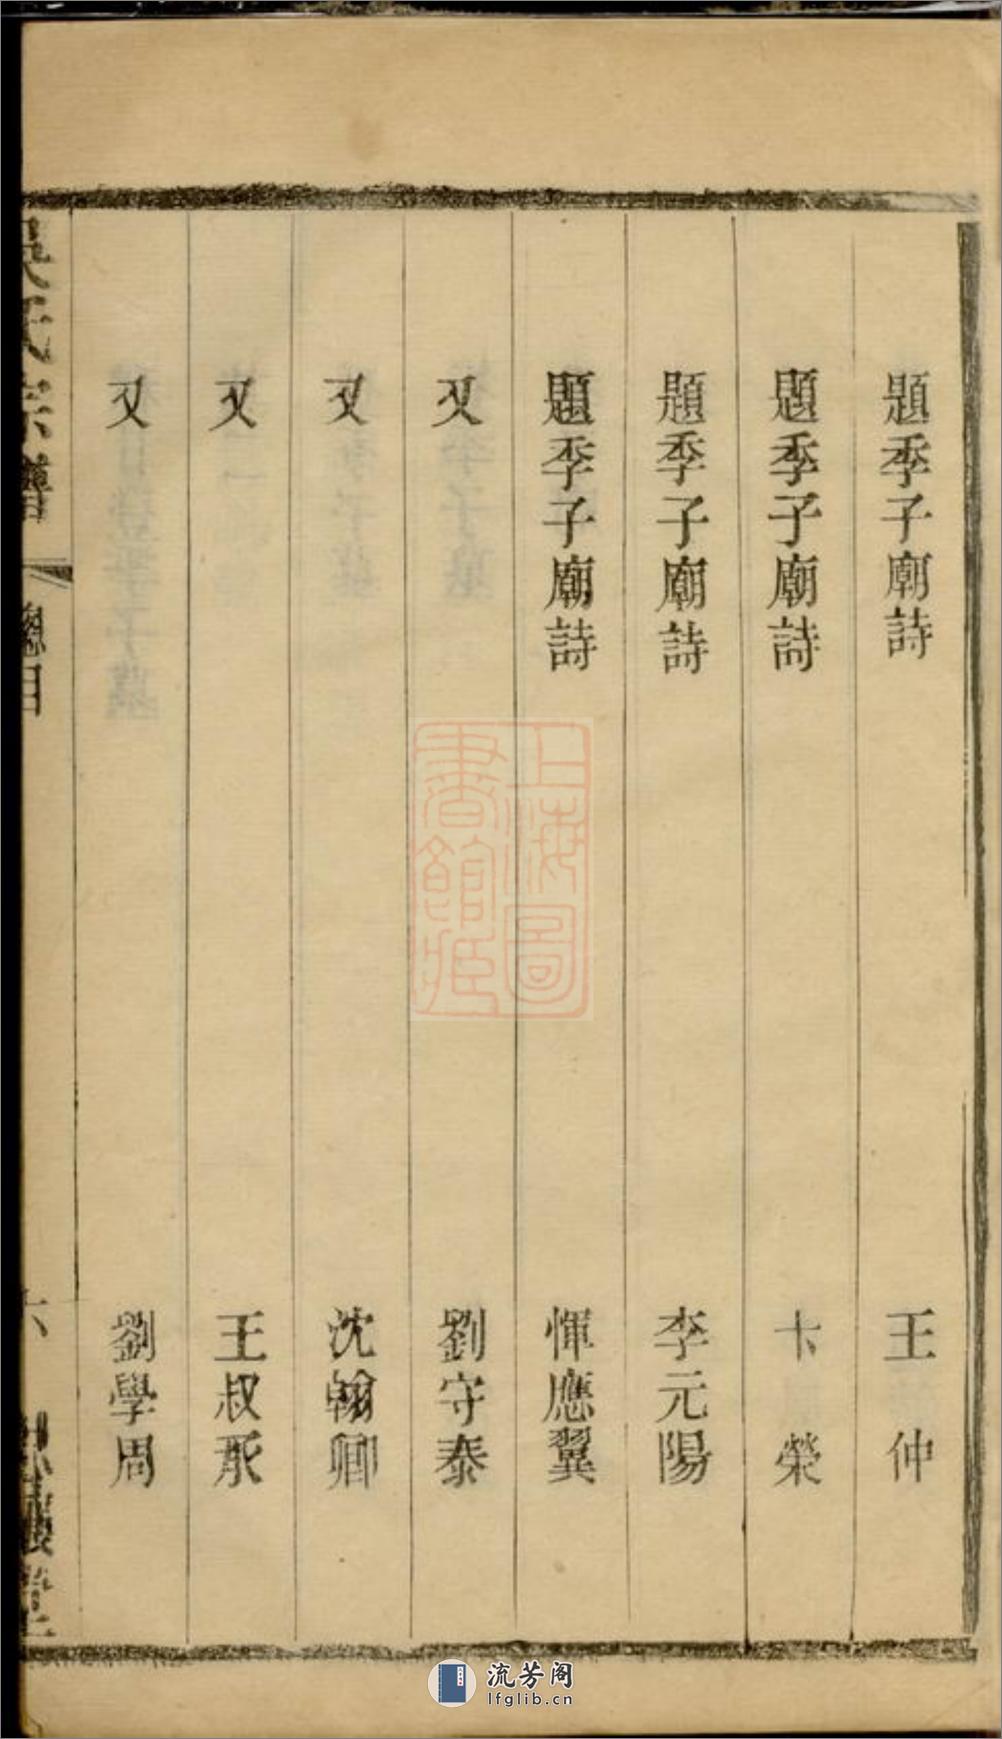 題季子廟詩 王仲
題季子廟詩 卞榮
題季子廟詩 李元陽
題季子廟詩 惲應翼
又 劉守泰
又 沈翰卿
又 王叔承
又 劉學周
吳氏宗譜 總目 六
上海圖書館藏
流芳阁
lfglib.cn